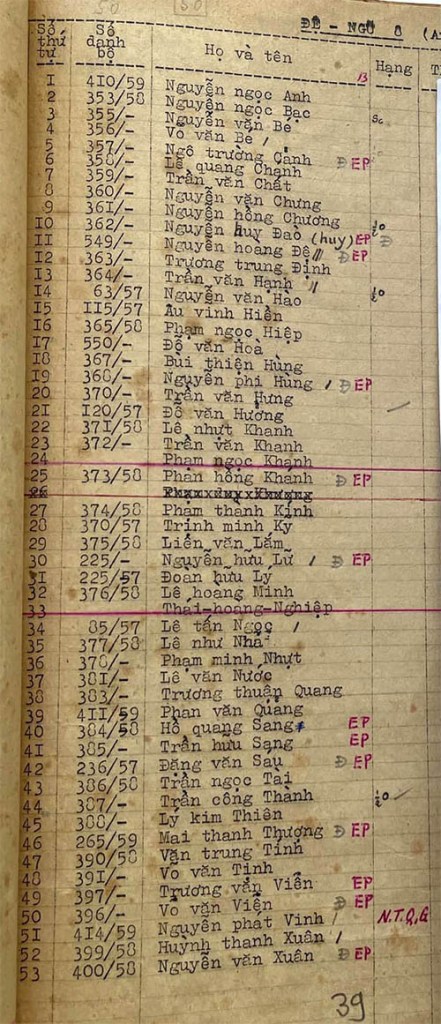 50 (50)
ĐỆ - NGŨ 8 (A
Số thứ tự Số danh bộ Họ và tên Hạng
13
1 410/59 Nguyễn ngọc Anh
2 353/58 Nguyễn ngọc Bạc
3 355/- Nguyễn văn Bé Sc
4 356/- Võ văn Be /
5 357/- Ngô trường Cảnh Đ EP
6 358/- Lê quang Chánh
7 359/- Trần văn Chất
8 360/- Nguyễn văn Chưng
9 361/- Nguyễn hồng Chương
10 362/- Nguyễn huy Đạo (huy) EP Đ
11 549/- Nguyễn hoàng Đệ // Đ EP
12 363/- Trương trung Định
13 364/- Trần văn Hạnh //
14 63/57 Nguyễn văn Hào
15 115/57 Âu vinh Hiển
16 365/58 Phạm ngọc Hiệp
17 550/- Đỗ văn Hoà
18 367/- Bùi thiện Hùng
19 368/- Nguyễn phi Hùng / Đ EP
20 370/- Trần văn Hưng
21 120/57 Đỗ văn Hưởng
22 371/58 Lê nhựt Khanh
23 372/- Trần văn Khanh
24 Phạm ngọc Khánh
25 373/58 Phan hồng Khanh Đ EP
26
27 374/58 Phạm thanh Kính
28 370/57 Trịnh minh Ký
29 375/58 Liên văn Lắm
30 225/- Nguyễn hữu Lư / Đ EP
31 225/57 Đoàn hữu Lý
32 376/58 Lê hoàng Minh
33 Thái-hoàng-Nghiệp
34 85/57 Lê tấn Ngọc /
35 377/58 Lê như Nhã
36 378/- Phạm minh Nhựt
37 381/- Lê văn Nước
38 383/- Trương thuận Quang
39 411/59 Phan văn Quảng
40 384/58 Hồ quang Sang EP
41 385/- Trần hữu Sang EP
42 236/57 Đặng văn Sáu Đ EP
43 386/58 Trần ngọc Tài
44 387/- Trần công Thành
45 388/- Lý kim Thiên
46 265/59 Mai thanh Thượng Đ EP
47 390/58 Văn trung Tính
48 391/- Võ văn Tịnh
49 397/- Trương văn Viễn EP
50 396/- Võ văn Viện Đ EP
51 414/59 Nguyễn phát Vinh / N.T.Q.G
52 399/58 Huỳnh thanh Xuân /
53 400/58 Nguyễn văn Xuân Đ EP
39